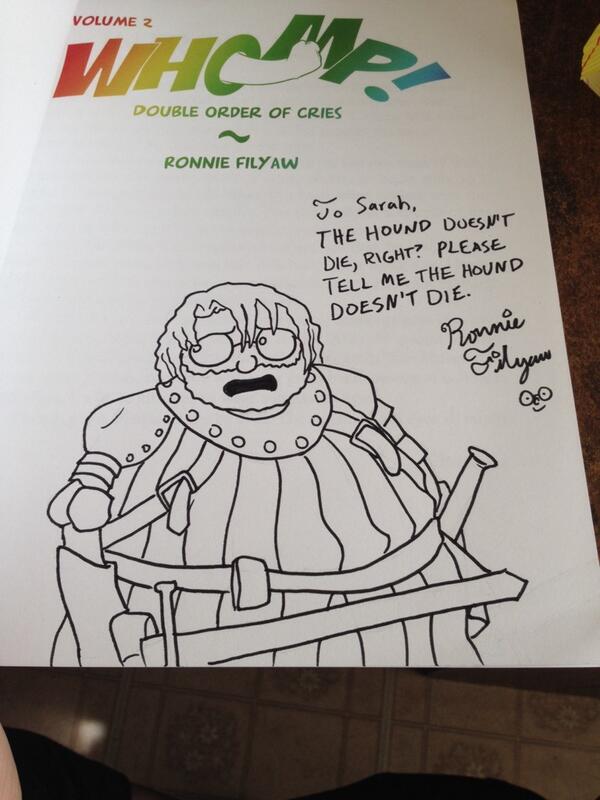 VOLUME 2
WHOMP!
DOUBLE ORDER OF CRIES
~
RONNIE FILYAW
To Sarah,
THE HOUND DOESN'T
DIE, RIGHT? PLEASE
TELL ME THE HOUND
DOESN'T DIE.
Ronnie
Filyaw